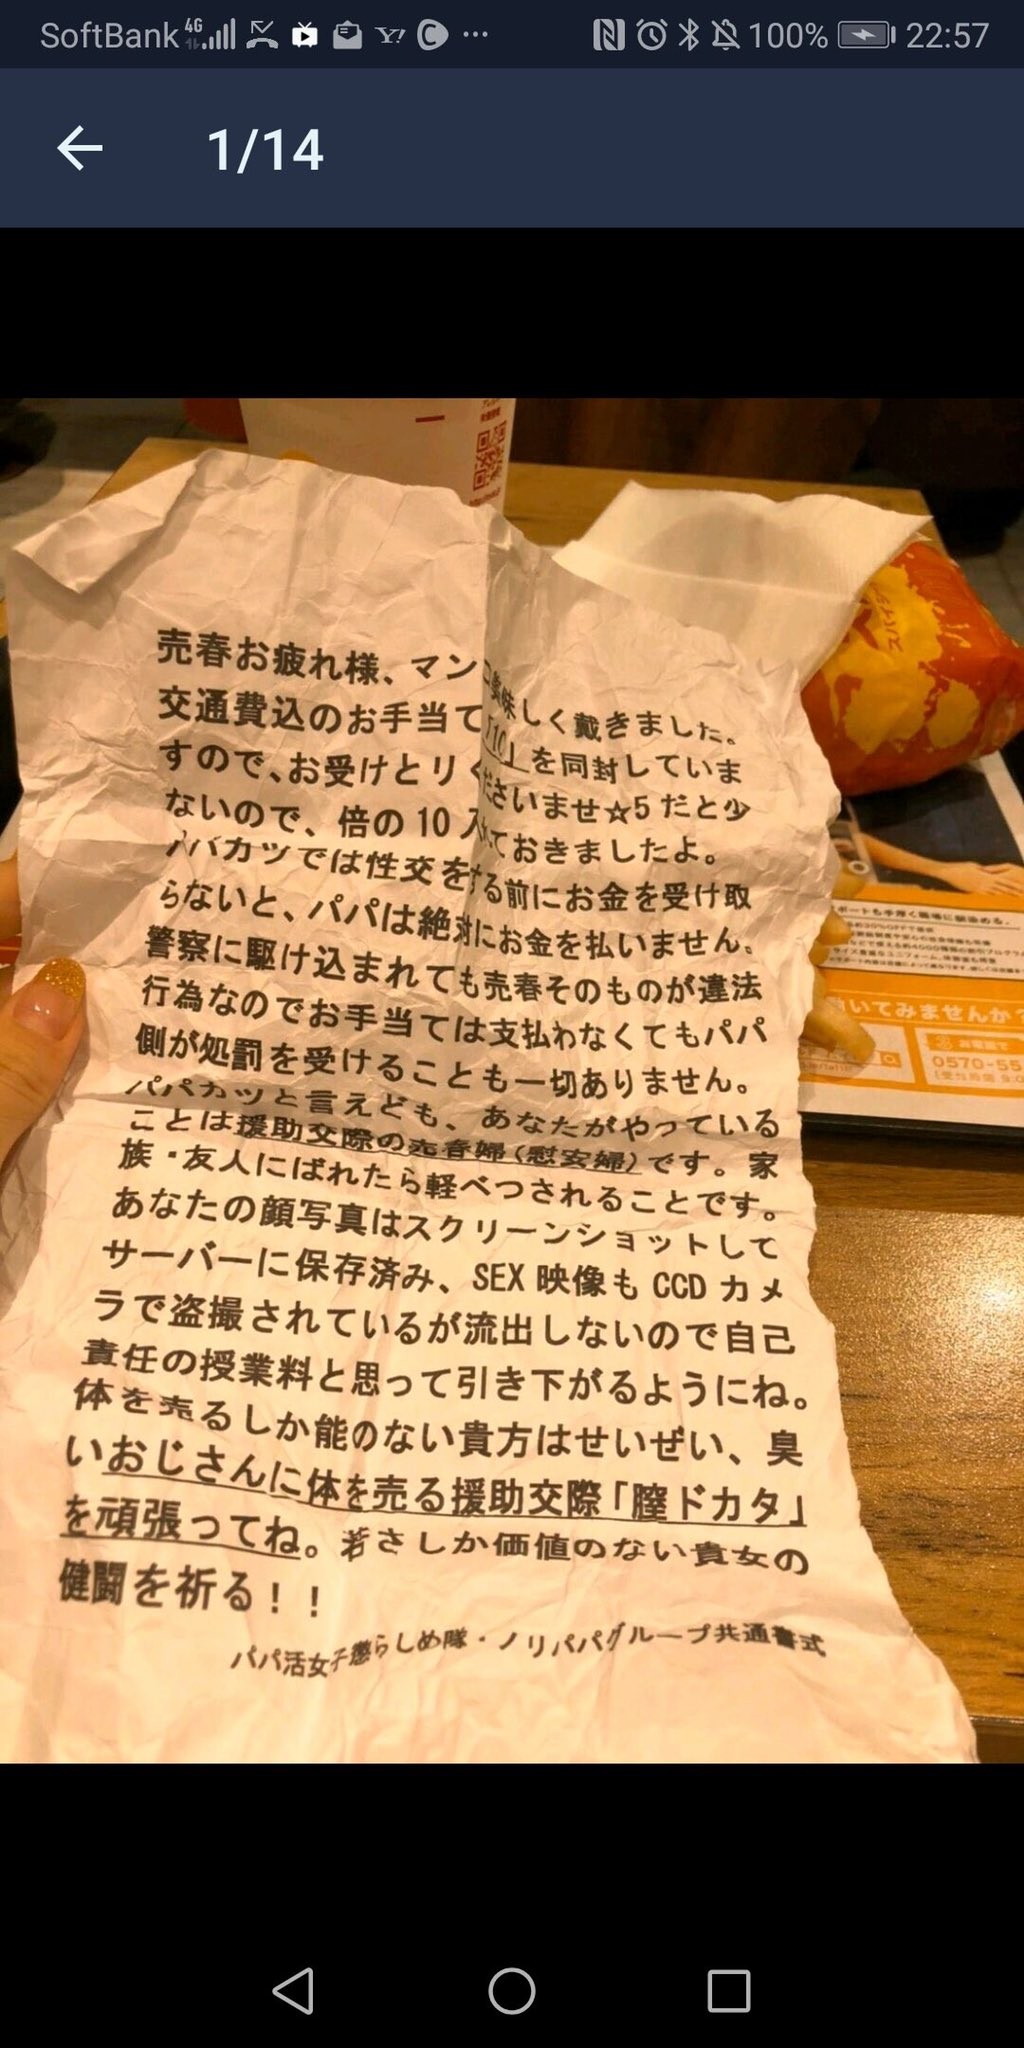 SoftBank 4G 100% 22:57
1/14
売春お疲れ様、マンコ美味しく戴きました。
交通費込のお手当て「10」を同封していま
すので、お受けとりくださいませ☆5だと少
ないので、倍の10入れておきましたよ。
パパカツでは性交をする前にお金を受け取
らないと、パパは絶対にお金を払いません。
警察に駆け込まれても売春そのものが違法
行為なのでお手当ては支払わなくてもパパ
側が処罰を受けることも一切ありません。
パパカツと言えども、あなたがやっている
ことは援助交際の売春婦(慰安婦)です。家
族・友人にばれたら軽べつされることです。
あなたの顔写真はスクリーンショットして
サーバーに保存済み、SEX映像もCCDカメ
ラで盗撮されているが流出しないので自己
責任の授業料と思って引き下がるようにね。
体を売るしか能のない貴方はせいぜい、臭
いおじさんに体を売る援助交際「膣ドカタ」
を頑張ってね。若さしか価値のない貴女の
健闘を祈る！！
パパ活女子懲らしめ隊・ノリパパグループ共通書式
ポートも手厚く職場に馴染める。
いてみませんか?
お電話で
0570-55